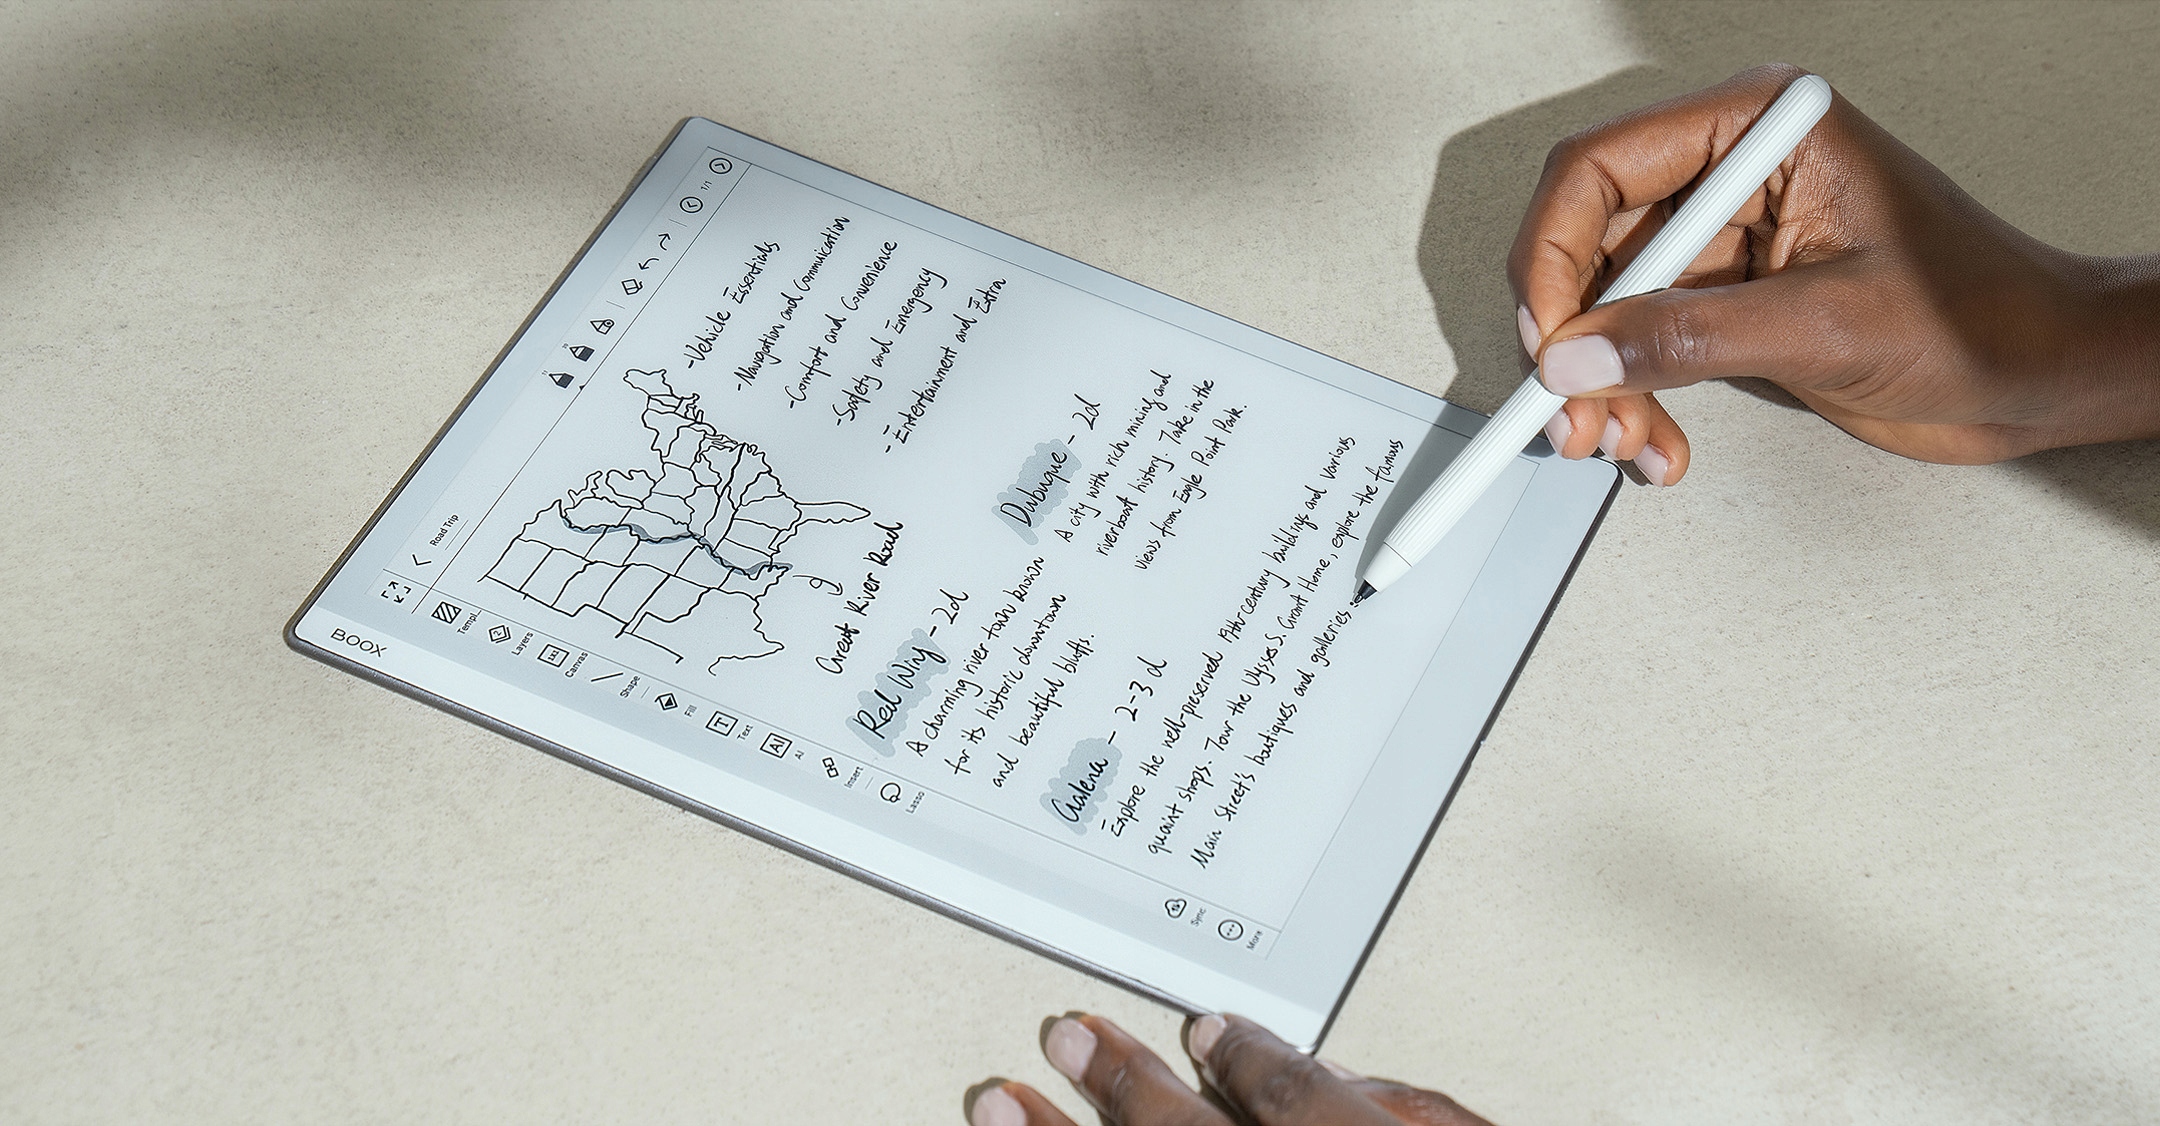 BOOX
Road Trip
1/1
Templ..
Layers
Canvas
Shape
Fill
Text
AI
AI
Insert
Lasso
Sync
More
-Vehicle Essentials
-Navigation and Communication
-Comfort and Convenience
-Safety and Emergency
-Entertainment and Extra
Great River Road
Red Wing - 2d
A charming river town known
for its historic downtown
and beautiful bluffs.
Dubuque - 2d
A city with rich mining and
riverboat history. Take in the
views from Eagle Point Park.
Galena - 2-3 d
Explore the well-preserved 19th-century buildings and various
quaint shops. Tour the Ulysses S. Grant Home, explore the famous
Main Street's boutiques and galleries.